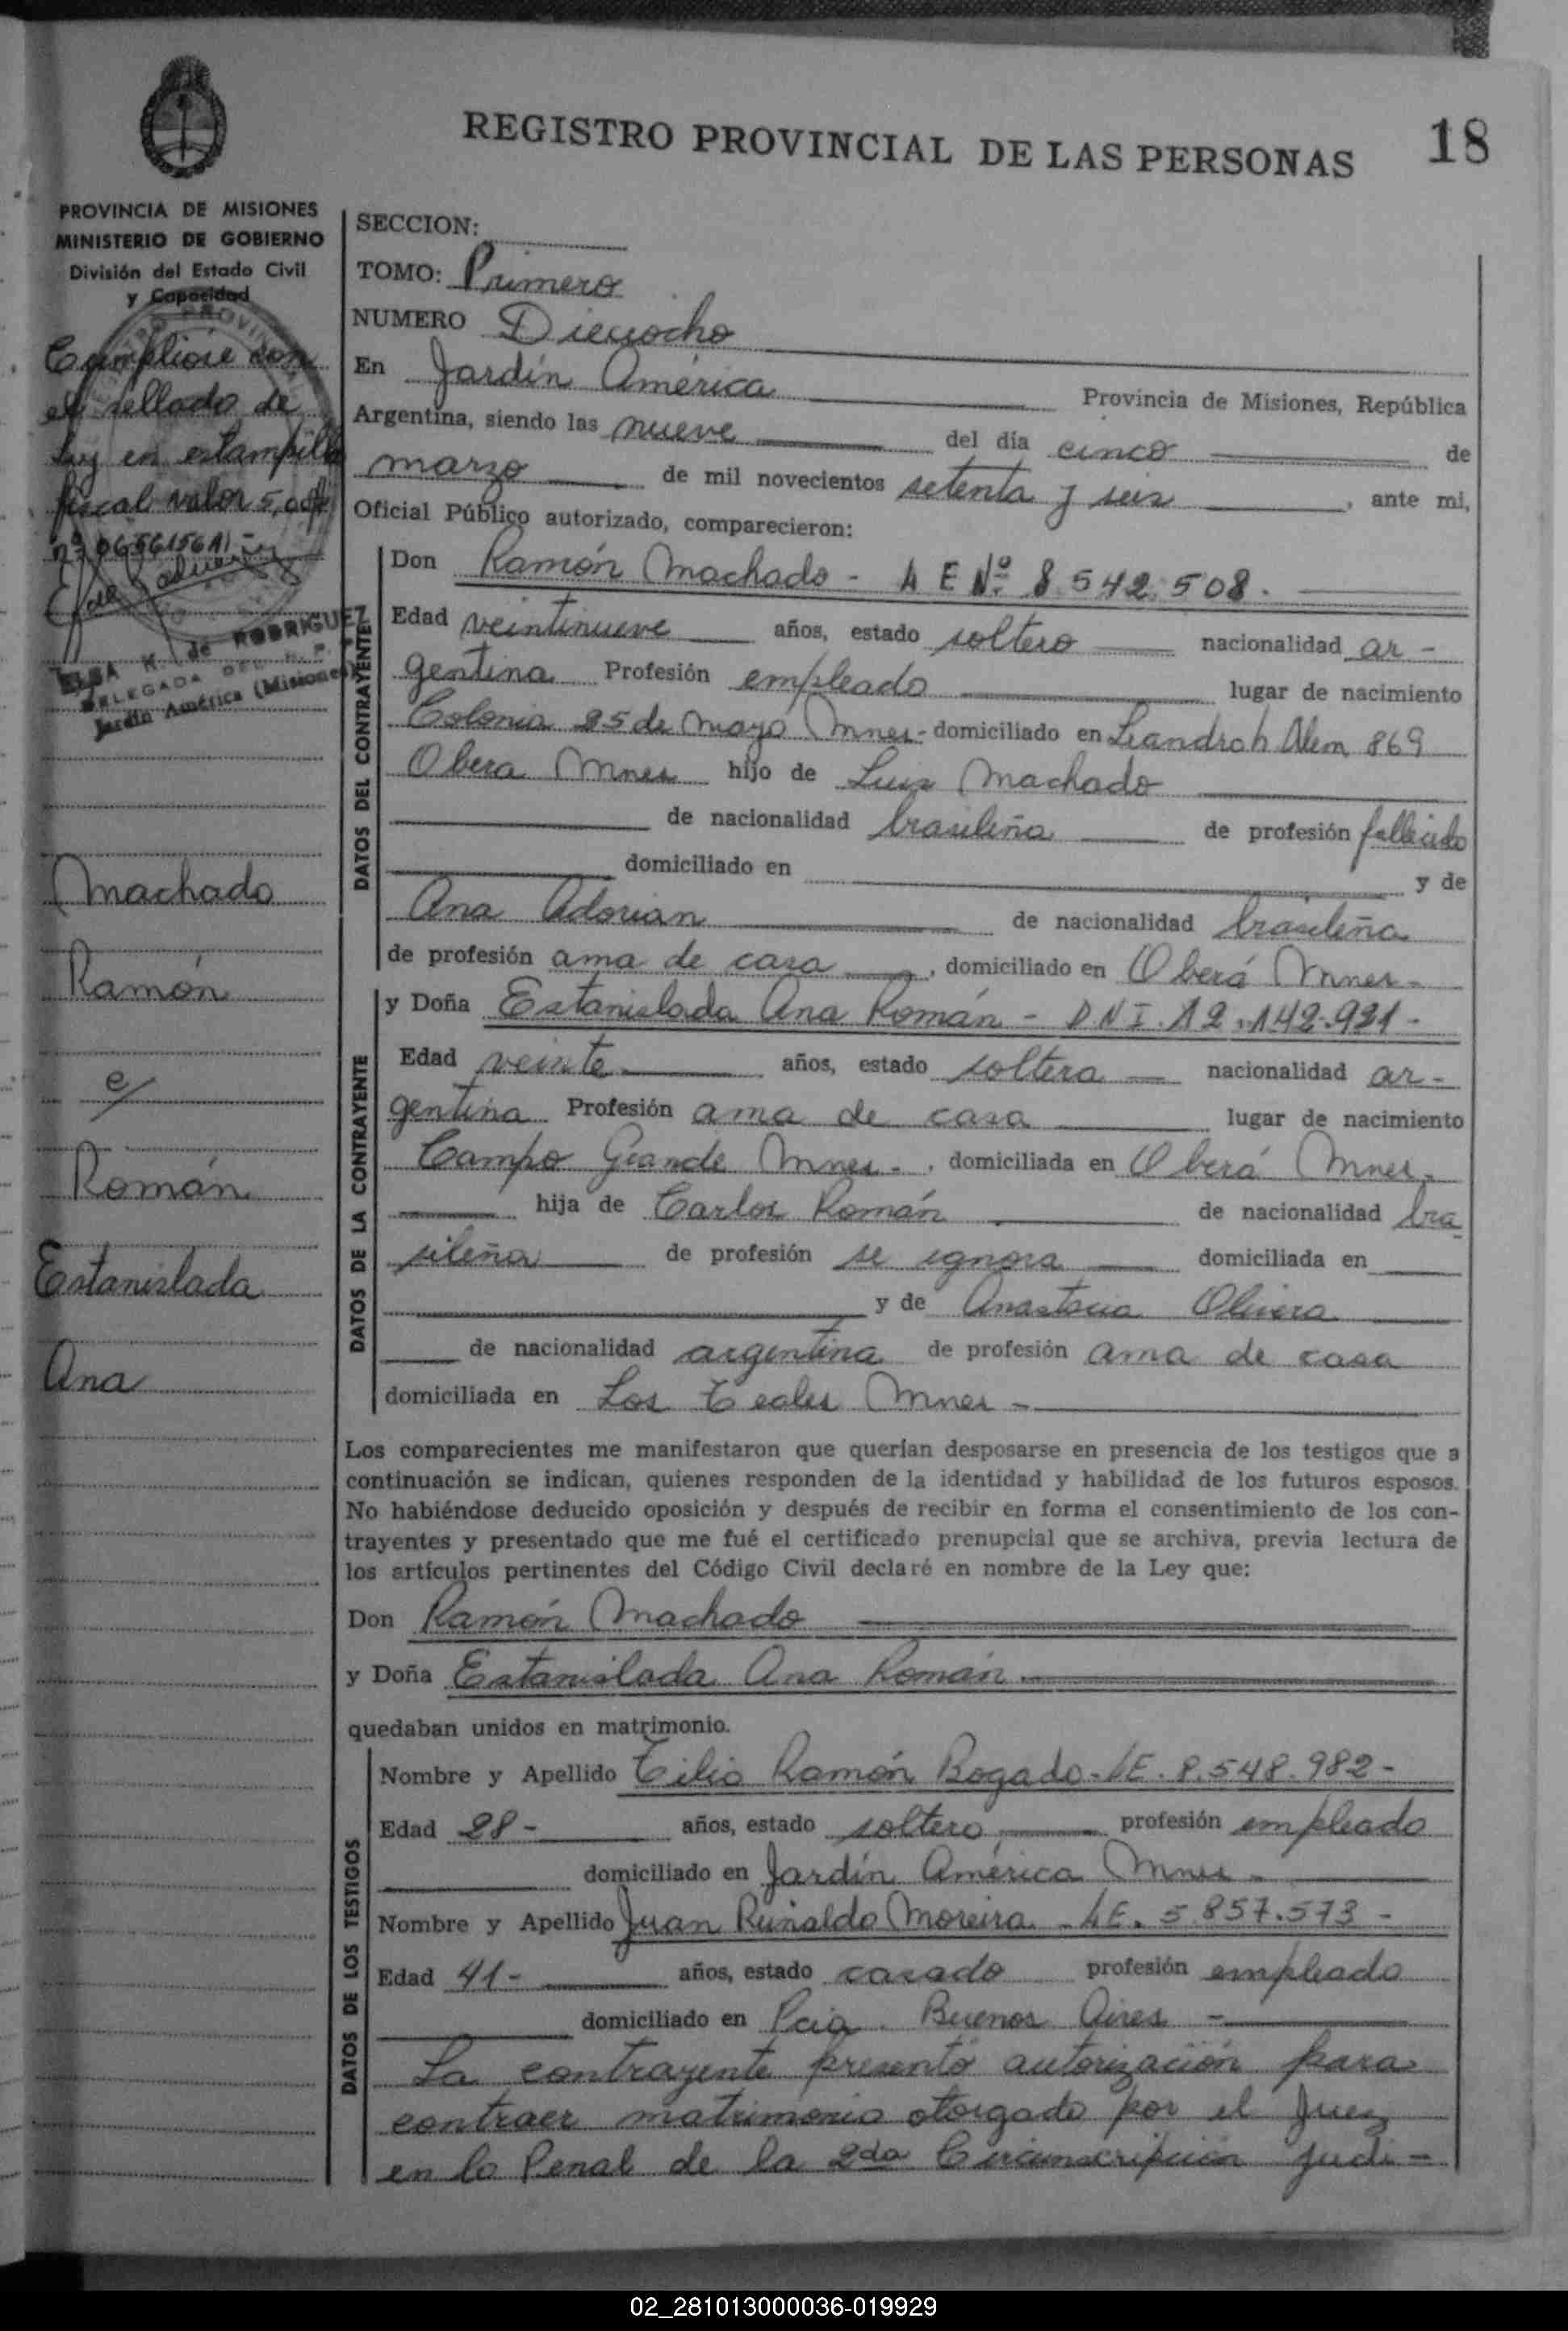 REGISTRO PROVINCIAL DE LAS PERSONAS
18
PROVINCIA DE MISIONES
MINISTERIO DE GOBIERNO
División del Estado Civil
y Capacidad
Cumpliose con
el sellado de
Ley en estampilla
fiscal valor 5,00
ELSA K. de RODRIGUEZ
DELEGADA DEL R. P.
Jardín América (Misiones)
Machado
Ramón
c/
Román
Estanislada
Ana
SECCION:
TOMO: Primero
NUMERO Dieciocho
En Jardín América Provincia de Misiones, República
Argentina, siendo las nueve del día cinco de
marzo de mil novecientos setenta y seis, ante mi,
Oficial Público autorizado, comparecieron:
DATOS DEL CONTRAYENTE
Don Ramón Machado - L E Nº 8.542.508.
Edad veintinueve años, estado soltero nacionalidad ar-
gentina Profesión empleado lugar de nacimiento
Colonia 25 de Mayo Mnes- domiciliado en Leandro N Alem 869
Obera Mnes hijo de Luis Machado
de nacionalidad brasileña de profesión fallecido
domiciliado en y de
Ana Adorian de nacionalidad brasileña
de profesión ama de casa, domiciliado en Oberá Mnes-
DATOS DE LA CONTRAYENTE
y Doña Estanislada Ana Román - D N I. 12.142.921-
Edad veinte años, estado soltera nacionalidad ar-
gentina Profesión ama de casa lugar de nacimiento
Campo Grande Mnes-, domiciliada en Oberá Mnes-
hija de Carlos Román de nacionalidad bra
sileña de profesión se ignora domiciliada en
y de Anastacia Olivera
de nacionalidad argentina de profesión ama de casa
domiciliada en Los Teales Mnes-
Los comparecientes me manifestaron que querían desposarse en presencia de los testigos que a
continuación se indican, quienes responden de la identidad y habilidad de los futuros esposos.
No habiéndose deducido oposición y después de recibir en forma el consentimiento de los con-
trayentes y presentado que me fué el certificado prenupcial que se archiva, previa lectura de
los artículos pertinentes del Código Civil declaré en nombre de la Ley que:
Don Ramón Machado
y Doña Estanislada Ana Román
quedaban unidos en matrimonio.
DATOS DE LOS TESTIGOS
Nombre y Apellido Tilio Ramón Bogado-LE. 8.548.982-
Edad 28- años, estado soltero profesión empleado
domiciliado en Jardín América Mnes-
Nombre y Apellido Juan Reinaldo Moreira - LE. 5.857.573-
Edad 41- años, estado casado profesión empleado
domiciliado en Pcia. Buenos Aires -
La contrayente presentó autorización para
contraer matrimonio otorgado por el Juez
en lo Penal de la 2da Circunscripción Judi-
02_281013000036-019929